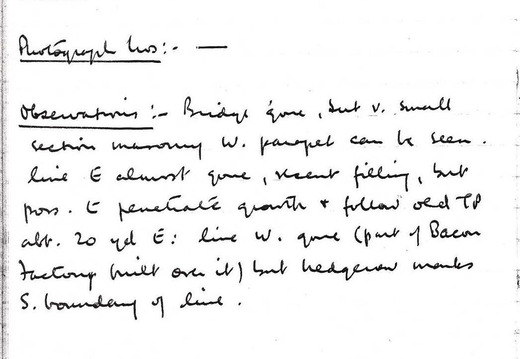 Photograph Nos:- —
Observations:- Bridge gone, but v. small
section masonry W. parapet can be seen.
line E almost gone, recent filling, but
poss. to penetrate growth + follow old TP
abt. 20 yd E: line W. gone (part of Bacon
Factory built over it) but hedgerow marks
S. boundary of line.